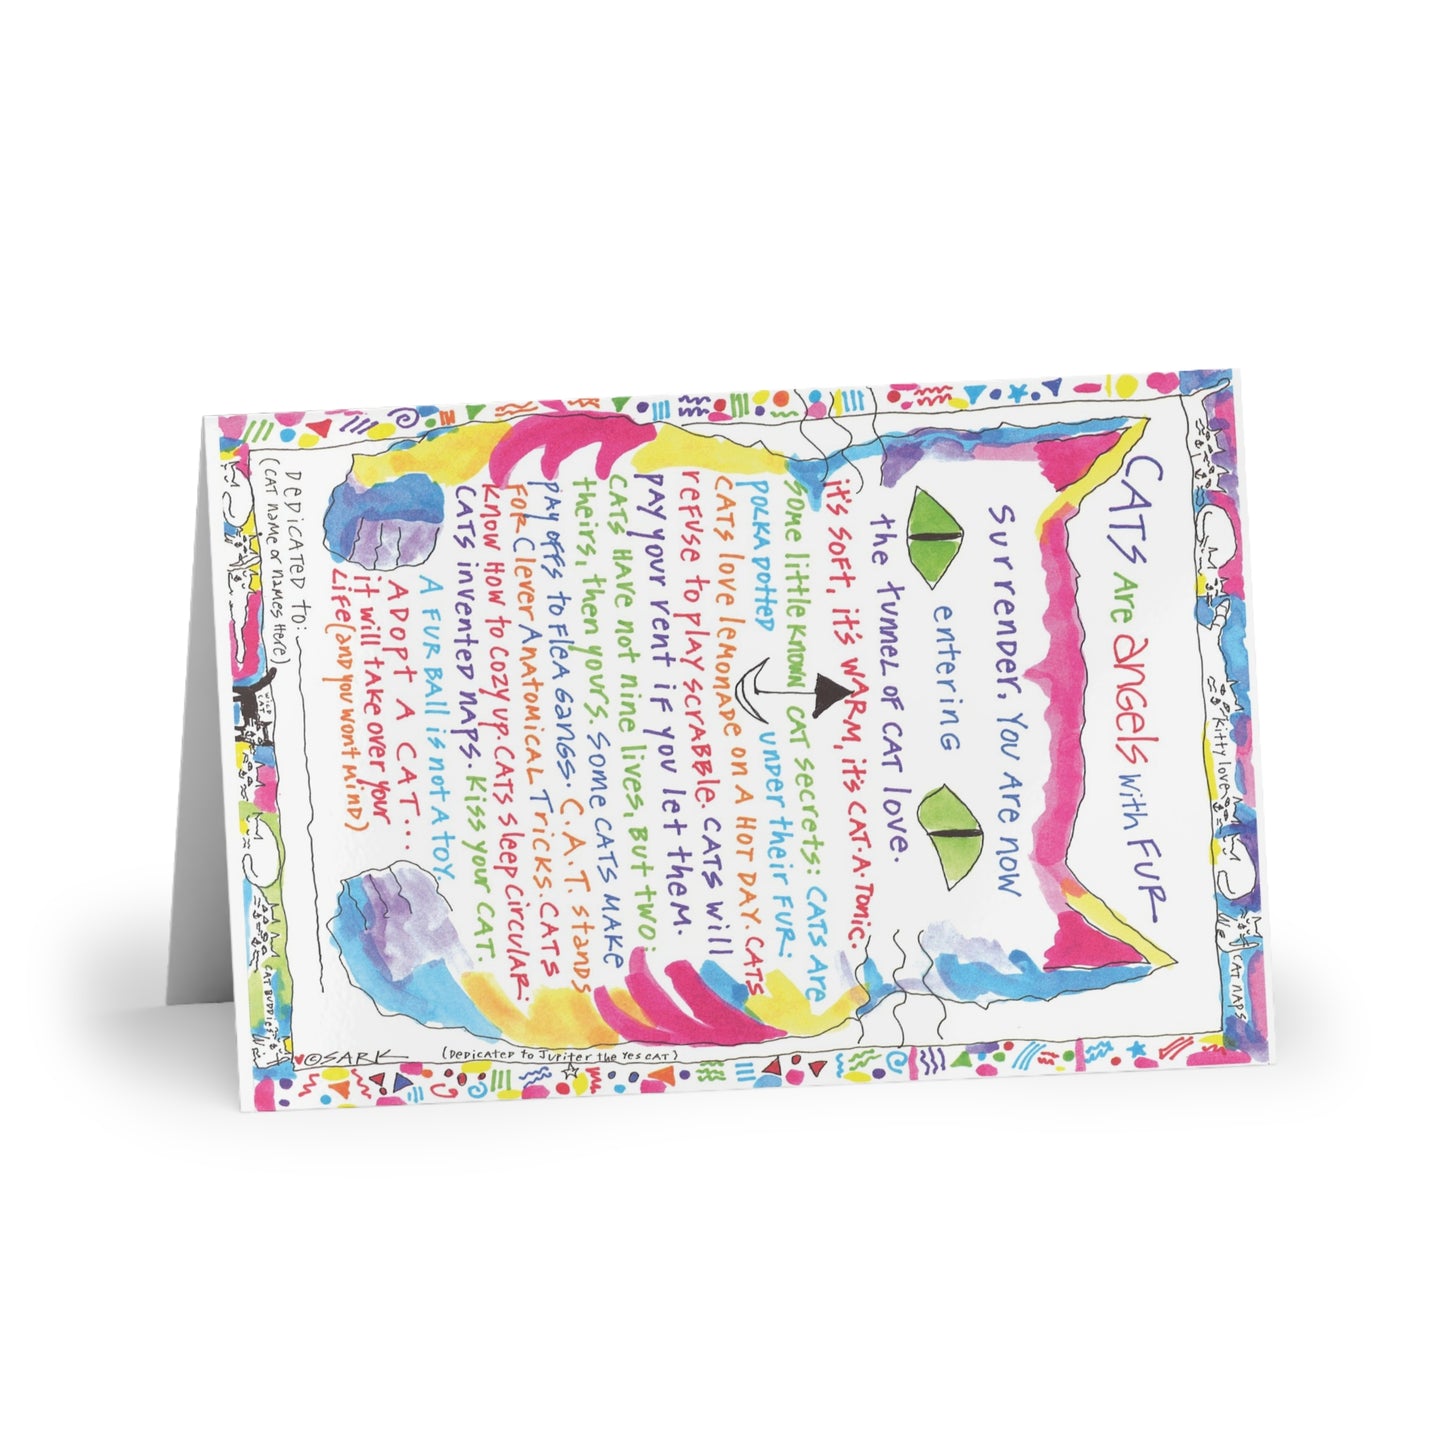 CATS ARE angels with FUR
Surrender. YOU ARE NOW
entering
the tunnel OF CAT love.
it's soft, it's WARM, it's CAT·A·Tonic.
Some little KNOWN CAT secrets: CATS ARE
POLKA DOTTED under their FUR.
CATS love lemonade on A HOT DAY. CATS
refuse to play scrabble. CATS will
PAY your rent if you let them.
CATS HAVE not nine lives, but two:
theirs, then yours. Some CATS MAKE
PAY OFFS to Flea Gangs. C.A.T. stands
FOR Clever Anatomical Tricks. CATS
KNOW HOW to cozy up. CATS sleep circular.
CATS invented naps. Kiss your CAT.
A FUR BALL is not A toy.
ADOPT A CAT...
it will take over your
Life (and you wont mind)
DEDICATED to:
(CAT name or names Here)
©SARK
(Dedicated to Jupiter the Yes CAT)
Kitty love
CAT NAPS
WILD
CAT
CAT BUDDIES